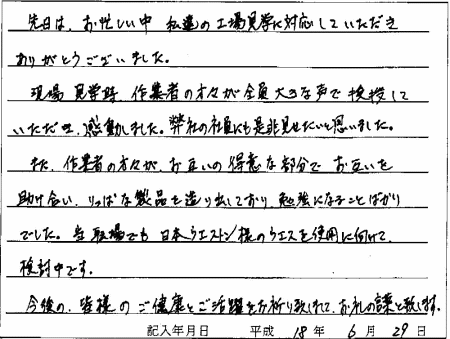 先日は、お忙しい中 私達の工場見学に対応していただき
ありがとうございました。
現場見学時、作業者の方々が全員大きな声で挨拶して
いただき、感動しました。弊社の社員にも是非見せたいと思いました。
また、作業者の方々が、お互いの得意な部分でお互いを
助け合い、りっぱな製品を造り出しており、勉強になることばかり
でした。当職場でも日本ウエストン様のウエスを使用に向けて、
検討中です。
今後の、皆様のご健康とご活躍をお祈り致しまして、お礼の言葉と致します。
記入年月日 平成 18 年 6 月 29 日